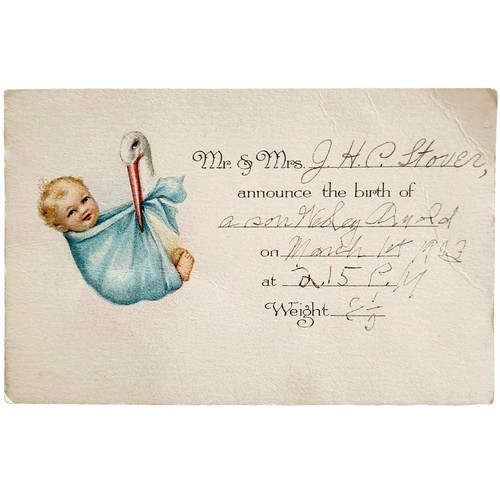 Mr. & Mrs. J. H. C. Stover,
announce the birth of
a son Wesley Arnold
on March 1st 1923
at 2.15 P. M
Weight